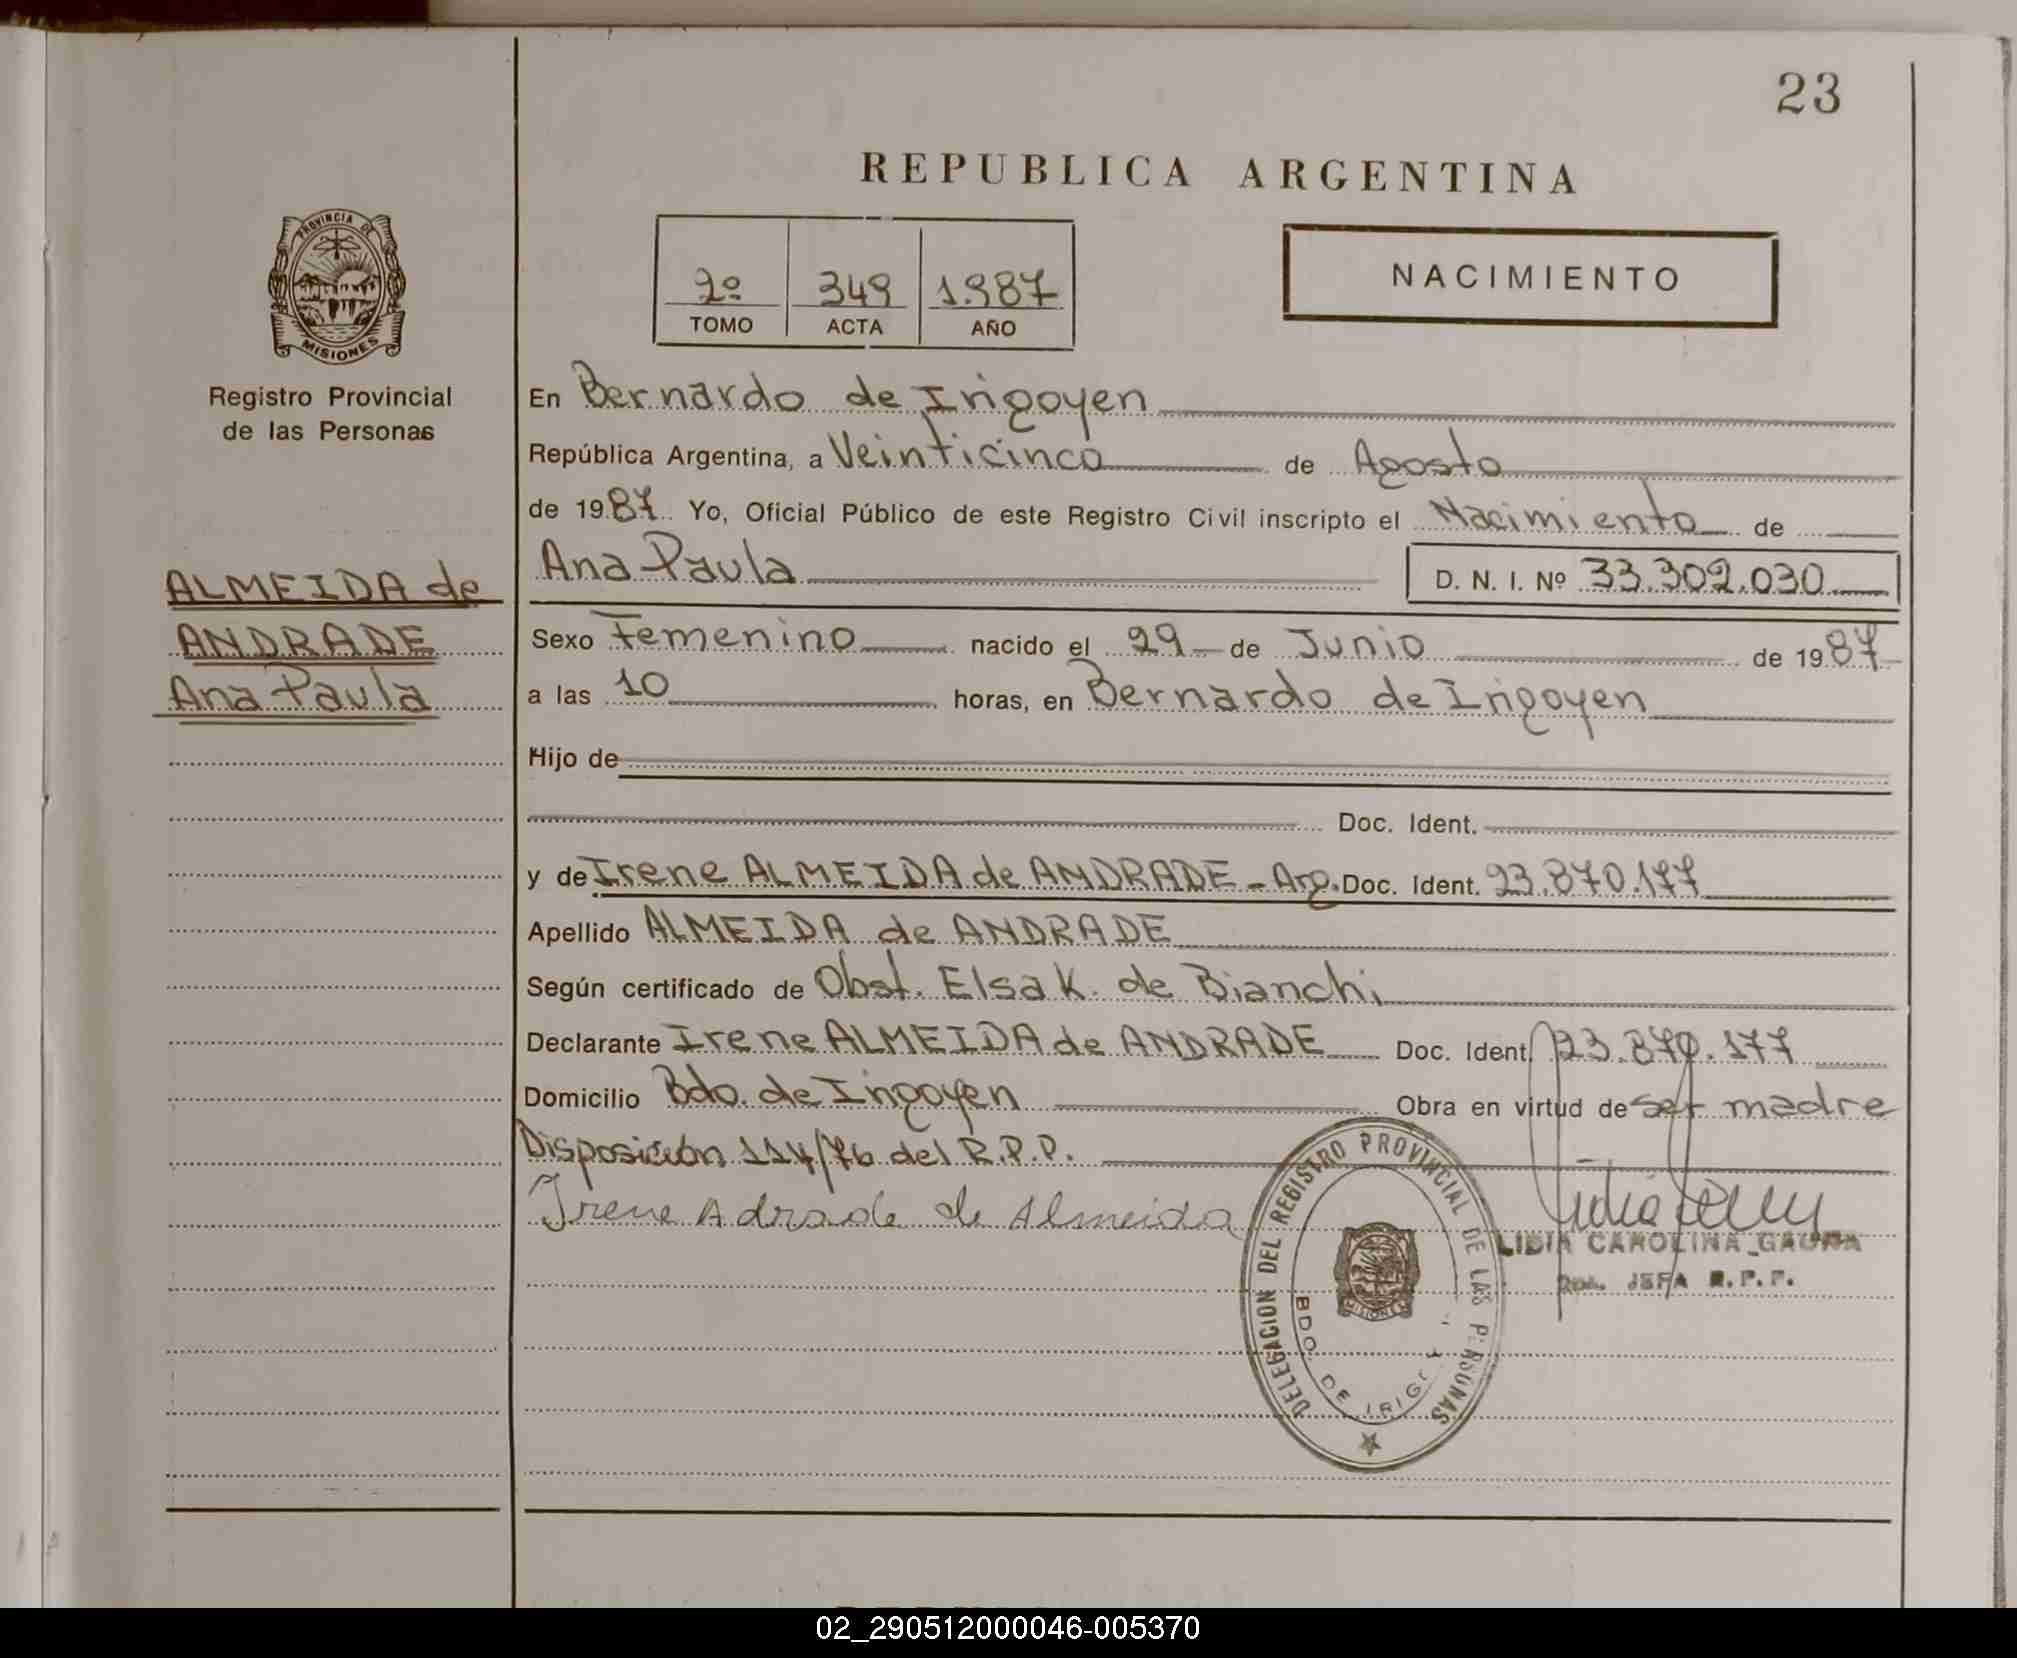 23
REPUBLICA ARGENTINA
PROVINCIA DE
MISIONES
Registro Provincial
de las Personas
2º 349 1.987
TOMO ACTA AÑO
NACIMIENTO
En Bernardo de Irigoyen
República Argentina, a Veinticinco de Agosto
de 1987 Yo, Oficial Público de este Registro Civil inscripto el Nacimiento de
Ana Paula D. N. I. Nº 33.302.030
ALMEIDA de
ANDRADE
Ana Paula
Sexo Femenino nacido el 29 de Junio de 1987
a las 10 horas, en Bernardo de Irigoyen
Hijo de
Doc. Ident.
y de Irene ALMEIDA de ANDRADE - Arg. Doc. Ident. 23.870.177
Apellido ALMEIDA de ANDRADE
Según certificado de Obst. Elsa K. de Bianchi
Declarante Irene ALMEIDA de ANDRADE Doc. Ident. 23.870.177
Domicilio Bdo. de Irigoyen Obra en virtud de ser madre
Disposición 114/76 del R.P.P.
Irene Adrade de Almeida
DELEGACION DEL REGISTRO PROVINCIAL DE LAS PERSONAS
BDO. DE
MISIONES
LIDIA CAROLINA
JEFA R.P.P.
02_290512000046-005370